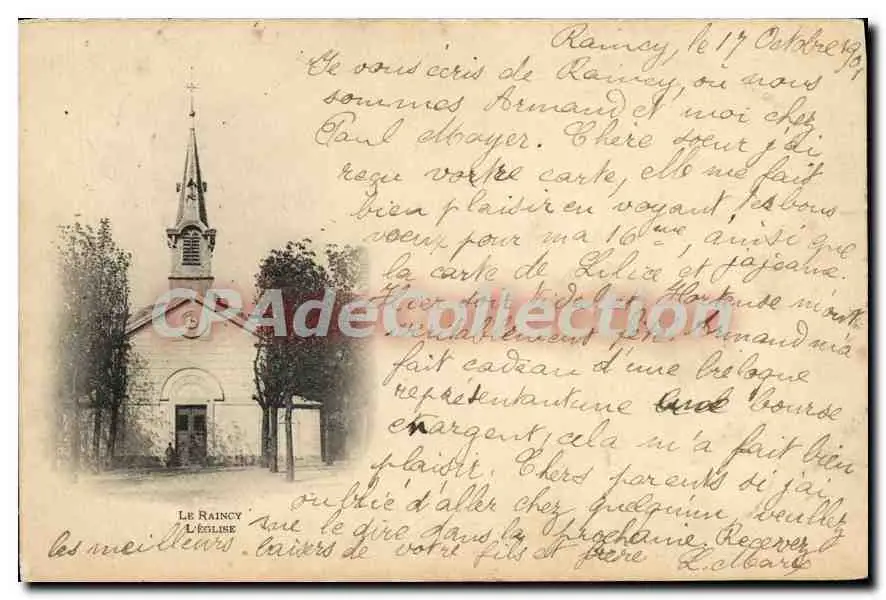 Raincy, le 17 Octobre 1901
Je vous écris de Raincy, où nous
sommes Armand et moi chez
Paul Mayer. Chère soeur j'ai
reçu vortre carte, elle me fait
bien plaisir en voyant, les bons
voeux pour ma 16me, ainsi que
la carte de Lilice et
Hier soir Hortense m'ont
fêté. Armand m'a
fait cadeau d'une breloque
représentant une bourse
en argent, cela m'a fait bien
plaisir. Chers parents si j'ai
oublié d'aller chez quelqu'un, veuillez
me le dire dans la prochaine. Recevez
les meilleurs baisers de votre fils et frère L. Marx
CPAphiladeCollection.com
LE RAINCY
L'ÉGLISE